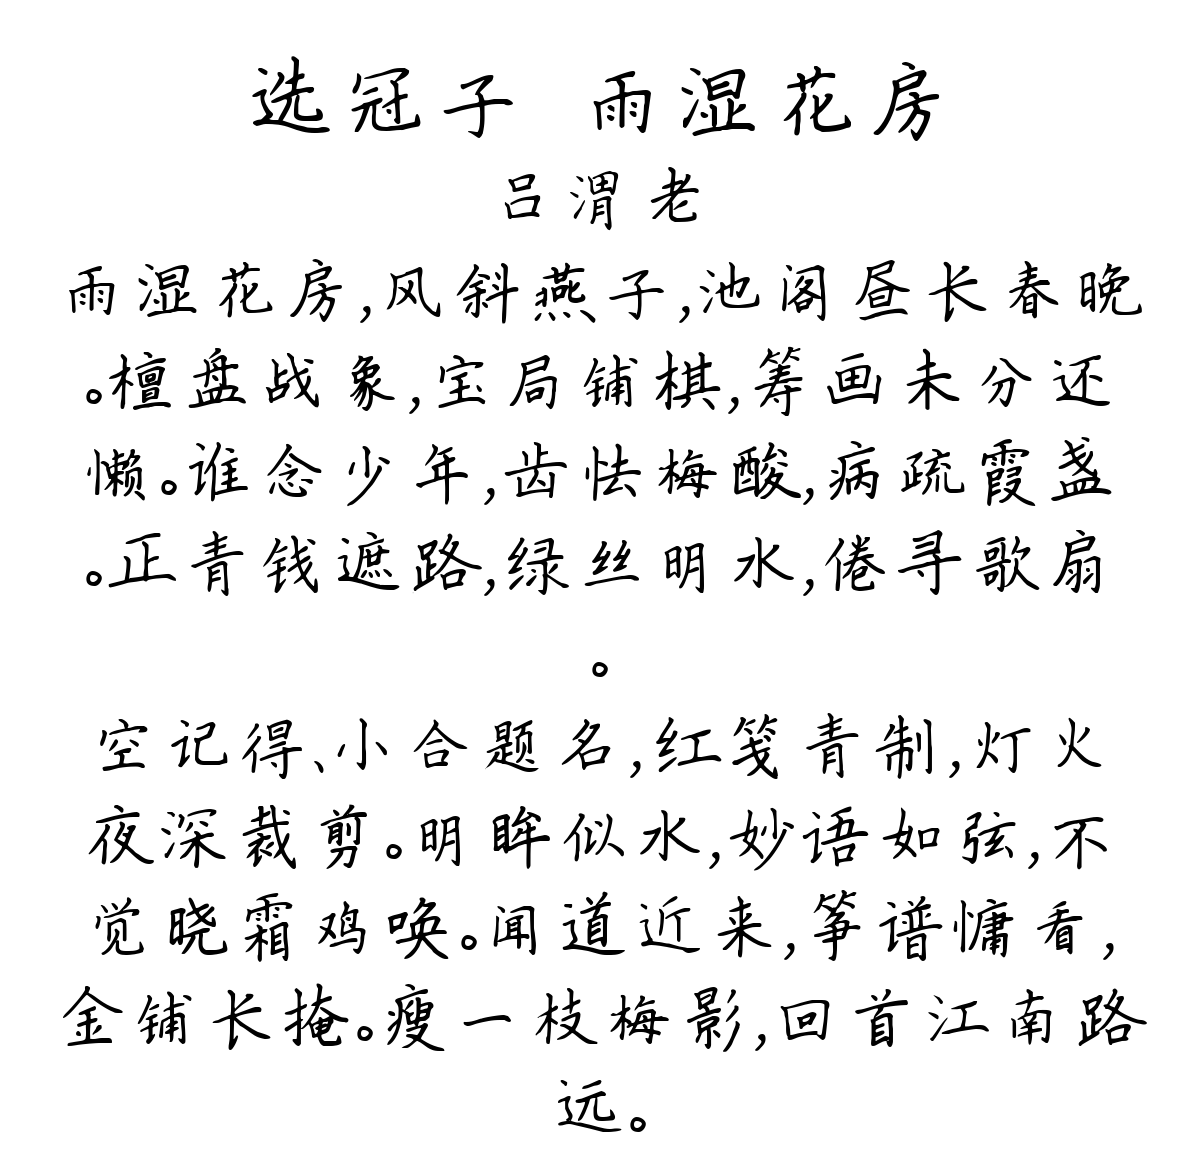 选冠子 雨湿花房
吕渭老
雨湿花房,风斜燕子,池阁昼长春晚
。檀盘战象,宝局铺棋,筹画未分还
懒。谁念少年,齿怯梅酸,病疏霞盏
。正青钱遮路,绿丝明水,倦寻歌扇
。
空记得、小合题名,红笺青制,灯火
夜深裁剪。明眸似水,妙语如弦,不
觉晓霜鸡唤。闻道近来,筝谱慵看,
金铺长掩。瘦一枝梅影,回首江南路
远。